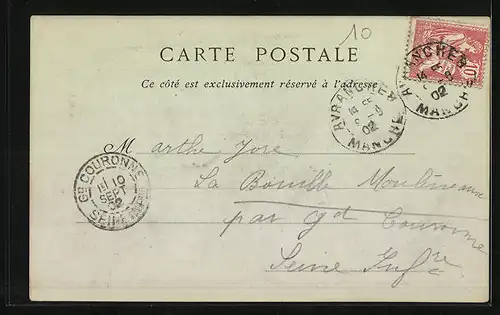 10
CARTE POSTALE
Ce côté est exclusivement réservé à l'adresse
10
AVRANCHES
02
MANCHE
AVRANCHES
02
MANCHE
Marthe Jore
La Bouille Moulineaux
par Gd Couronne
Seine Infre
GD COURONNE
10
SEPT
02